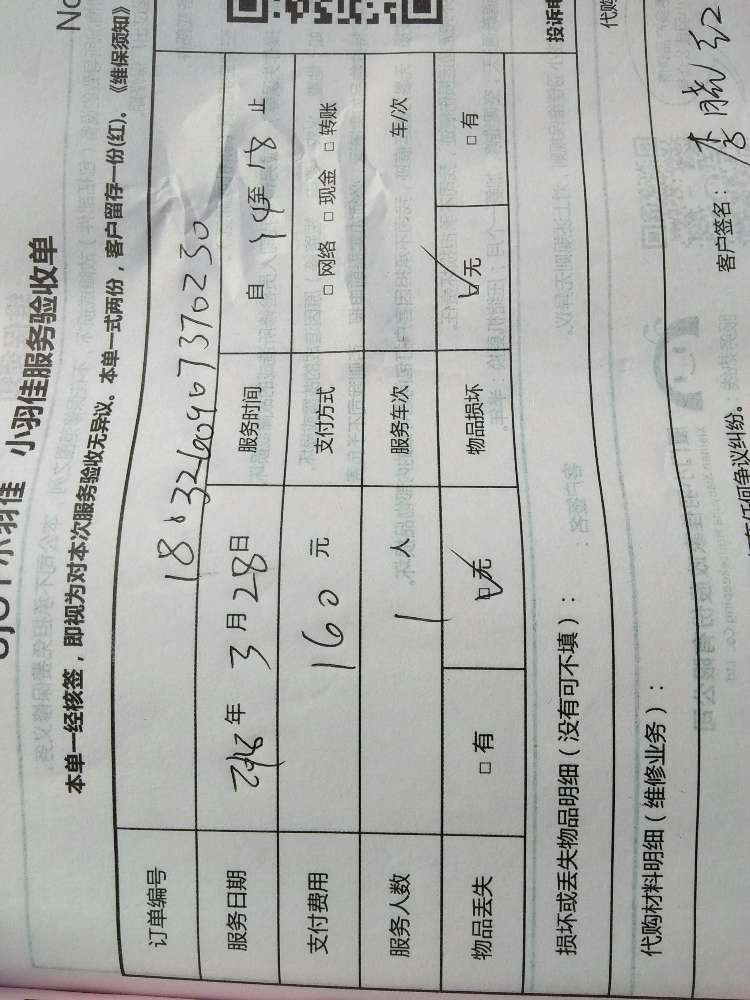 小羽佳 小羽佳服务验收单
No
本单一经核签，即视为对本次服务验收无异议。本单一式两份，客户留存一份(红)。《维保须知》
订单编号
服务日期 2018年 3月 28日 服务时间 自 14至 18 止
支付费用 160 元 支付方式 □ 网络 □ 现金 □ 转账
服务人数 1 人 服务车次 车/次
物品丢失 □ 有 ☑ 无 物品损坏 ☑ 无 □ 有
损坏或丢失物品明细（没有可不填）：
投诉
代购材料明细（维修业务）：
代购
客户签名： 李晓红
任何争议纠纷。